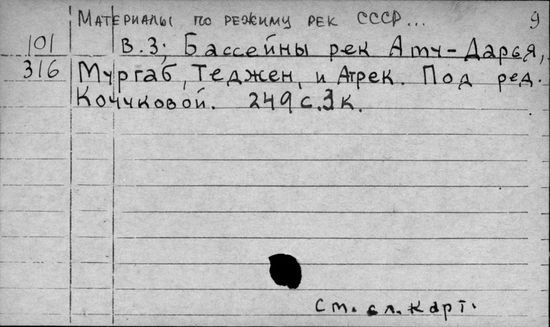 Материалы по режиму рек СССР... 9
101 В.3; Бассейны рек Аму-Дарья,
316 Мургаб, Теджен, и Атрек. Под ред.
249 с. 3 к.
См. сл. карт.